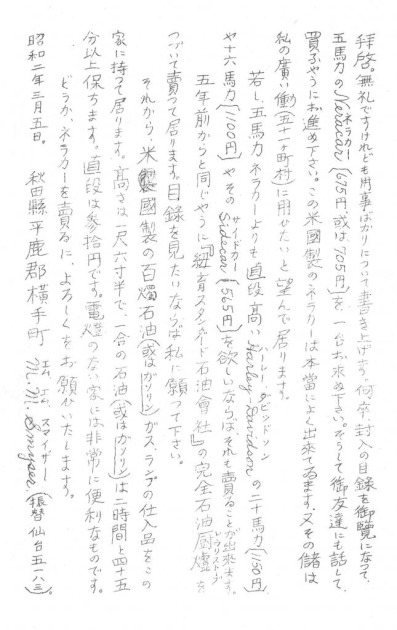 拝啓。無礼ですけれども用事ばかりについて書き上げます。何卒封入の目録を御覧になって、
五馬力のNeracar(675円或は705円)を一台お求め下さい。そうして御友達にも話して、
ネラカー
買ふやうにお進め下さい。この米國製のネラカーは本當によく出来てゐます。又その儲は
私の廣い働(五十一ヶ町村)に用ひたいと望んで居ります。
若し五馬力ネラカーよりも直段高いHarley-Davidsonの二十馬力(1180円)
ハーレーダビドソン
や十六馬力(1100円)やそのSidecar(565円)を欲しいならばそれも賣ることが出来ます。
サイドカー
五年前からと同じやうに『紐育スタンダード石油會社』の完全石油厨爐を
つづいて賣って居ります。目録を見たいならば私に願って下さい。
それから、米國製の百燭石油(或はガソリン)ガス、ランプの仕入品をこの
家に持って居ります。高さは一尺六寸半で、一合の石油(或はガソリン)は二時間と四十五
分以上保ちます。直段は参拾円です。電燈のない家には非常に便利なものです。
どうか、ネラカーを賣るに、よろしくをお願ひいたします。
昭和二年三月五日。 秋田縣平鹿郡横手町 M.M.Smyser(振替仙台五一八三)
エム エム スマイザー